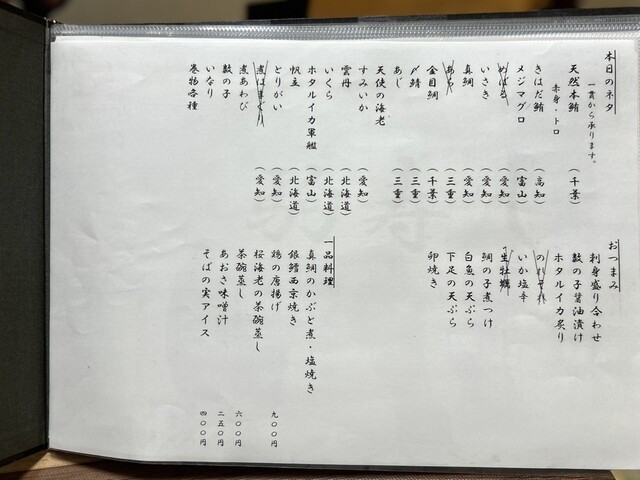 本日のネタ
一貫から承ります。
天然本鮪 (千葉)
赤身・トロ
きはだ鮪 (高知)
メジマグロ (富山)
めばる (愛知)
いさき (愛知)
真鯛 (愛知)
(三重)
金目鯛 (千葉)
〆鯖 (三重)
あじ (三重)
天使の海老
すみいか (愛知)
雲丹 (北海道)
いくら (北海道)
ホタルイカ軍艦 (富山)
帆立 (北海道)
とりがい (愛知)
煮はまぐり (愛知)
煮あわび
数の子
いなり
巻物各種
おつまみ
刺身盛り合わせ
数の子醤油漬け
ホタルイカ炙り
のれそれ
いか塩辛
生牡蠣
鯛の子煮つけ
白魚の天ぷら
下足の天ぷら
卵焼き
一品料理
真鯛のかぶと煮・塩焼き
銀鱈西京焼き
鶏の唐揚げ 九〇〇円
桜海老の茶碗蒸し
茶碗蒸し 六〇〇円
あおさ味噌汁 二五〇円
そばの実アイス 四〇〇円